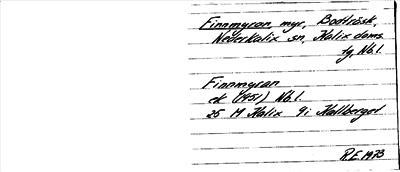 Finnmyran myr, Bodträsk,
Nederkalix sn, Kalix doms
tg, Nb l.
Finnmyran
ek (1951) Nb l.
25 M Kalix 9i Kallberget
R.E. 1973